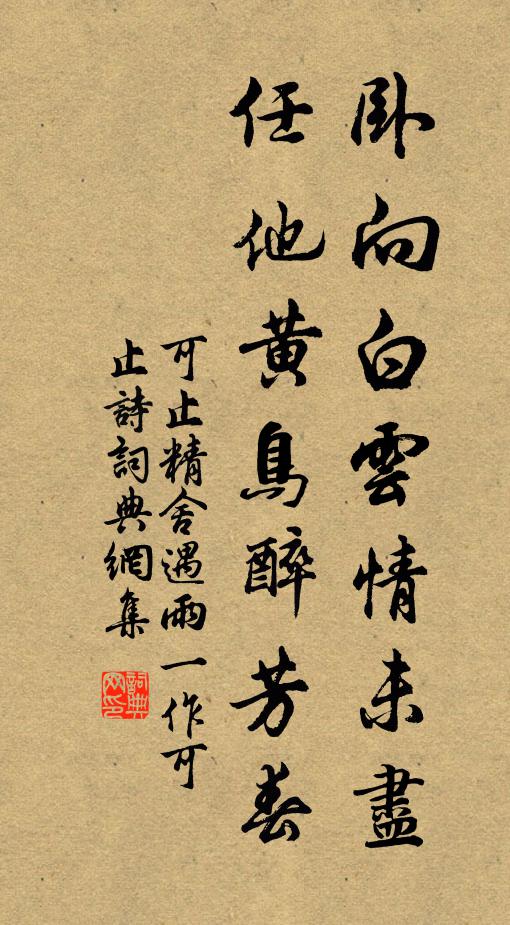 臥向白雲情未盡
任他黃鳥醉芳春
可止精舍遇雨一作可
止詩詞典網集
詞典網印